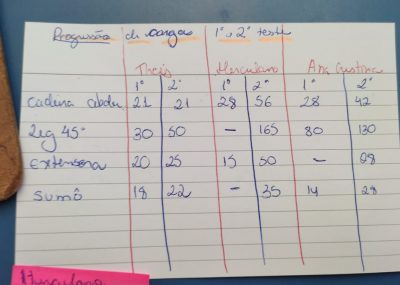 Progressão de cargas 1º e 2º teste
Thais Herculano Ana Cristina
1º 2º 1º 2º 1º 2º
Cadeira abdu. 21 21 28 56 28 42
Leg 45º 30 50 - 165 80 130
Extensora 20 25 15 50 - 98
Sumô 18 22 - 35 14 28
Herculano